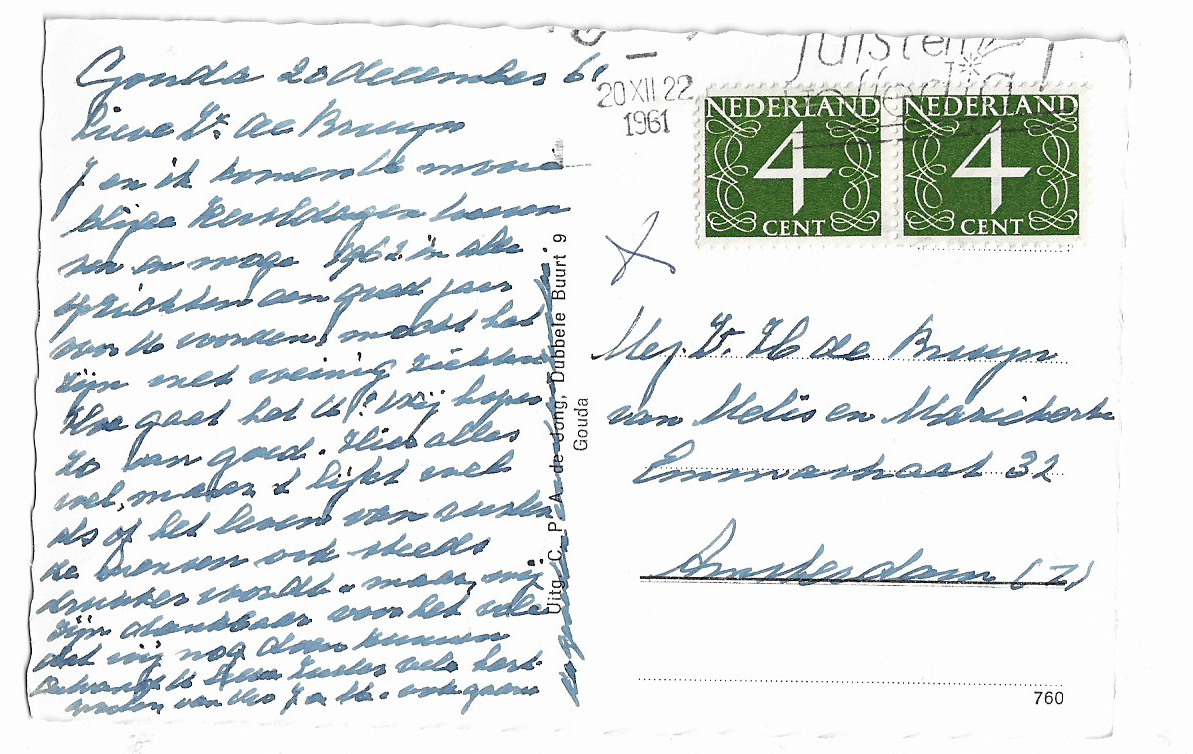 Gouda 20 december 61
Lieve Zr. de Bruyn
J en ik komen U mooie
blijde Kerstdagen wensen
en moge 1962 in alle
opzichten een goed jaar
voor U worden, mocht het
zijn met weinig
Hoe gaat het U? Wij hopen
zo van goed. Hier alles
wel, maar 't lijkt wel
als of het leven van
mensen ook steeds
drukker wordt. maar, wij
zijn dankbaar voor het vele
dat wij nog doen kunnen
Ontvangt U lieve Zuster vele hart.
groeten van Uw J en
Uitg. C. P. A. de Jong, Dubbele Buurt 9
Gouda
20 XII 22
1961
juistem
NEDERLAND NEDERLAND
4 4
CENT CENT
Mej. Zr. H de Bruyn
van Melis en
Emmastraat 32
Amsterdam (Z)
760